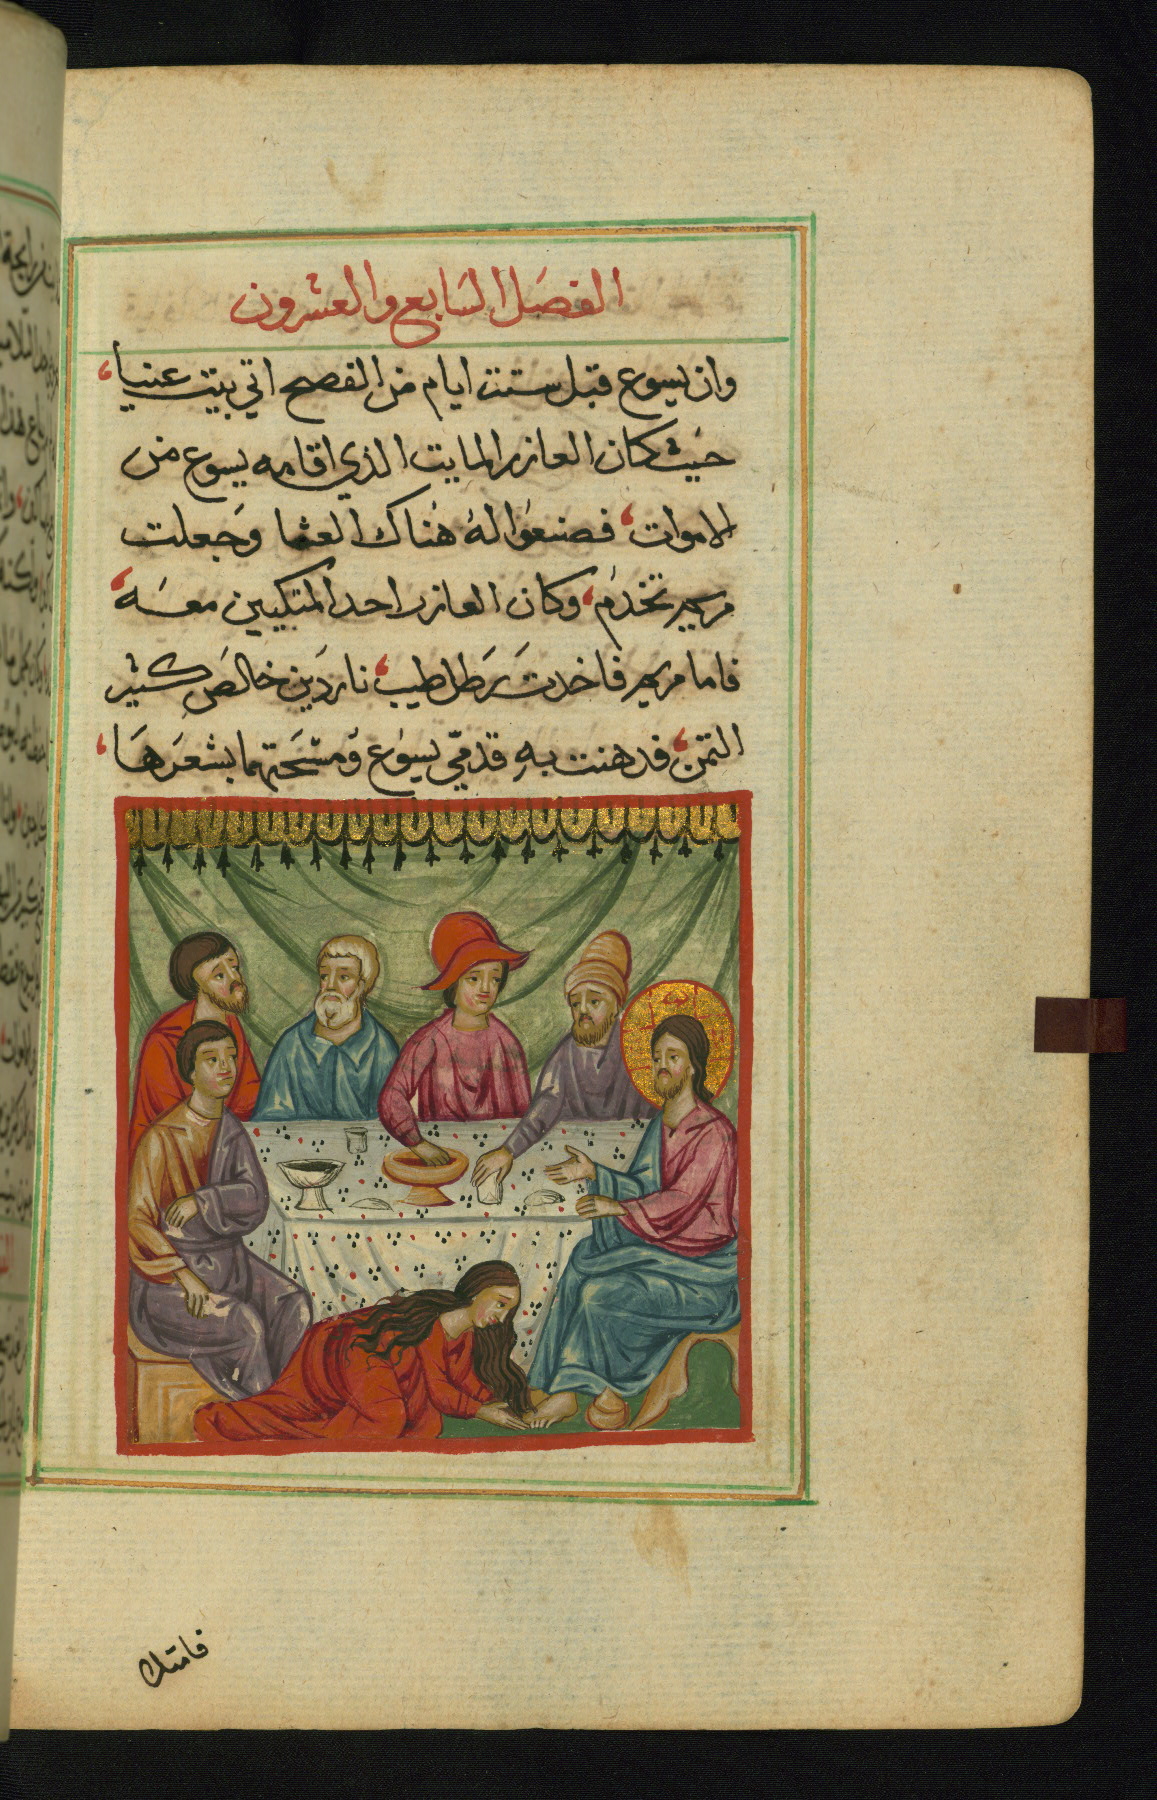 الفصل السابع والعشرون
وان يسوع قبل ستت ايام من الفصح اتي بيت عنيا
حيث كان العازر المايت الذي اقامه يسوع من
الاموات فصنعوا له هناك العشا وجعلت
مريم تخدم وكان العازر احد المتكيين معه
فاما مريم فاخدت رطل طيب ناردين خالص كثير
التمن فدهنت به قدمي يسوع ومسحتهما بشعرها
فامتلا